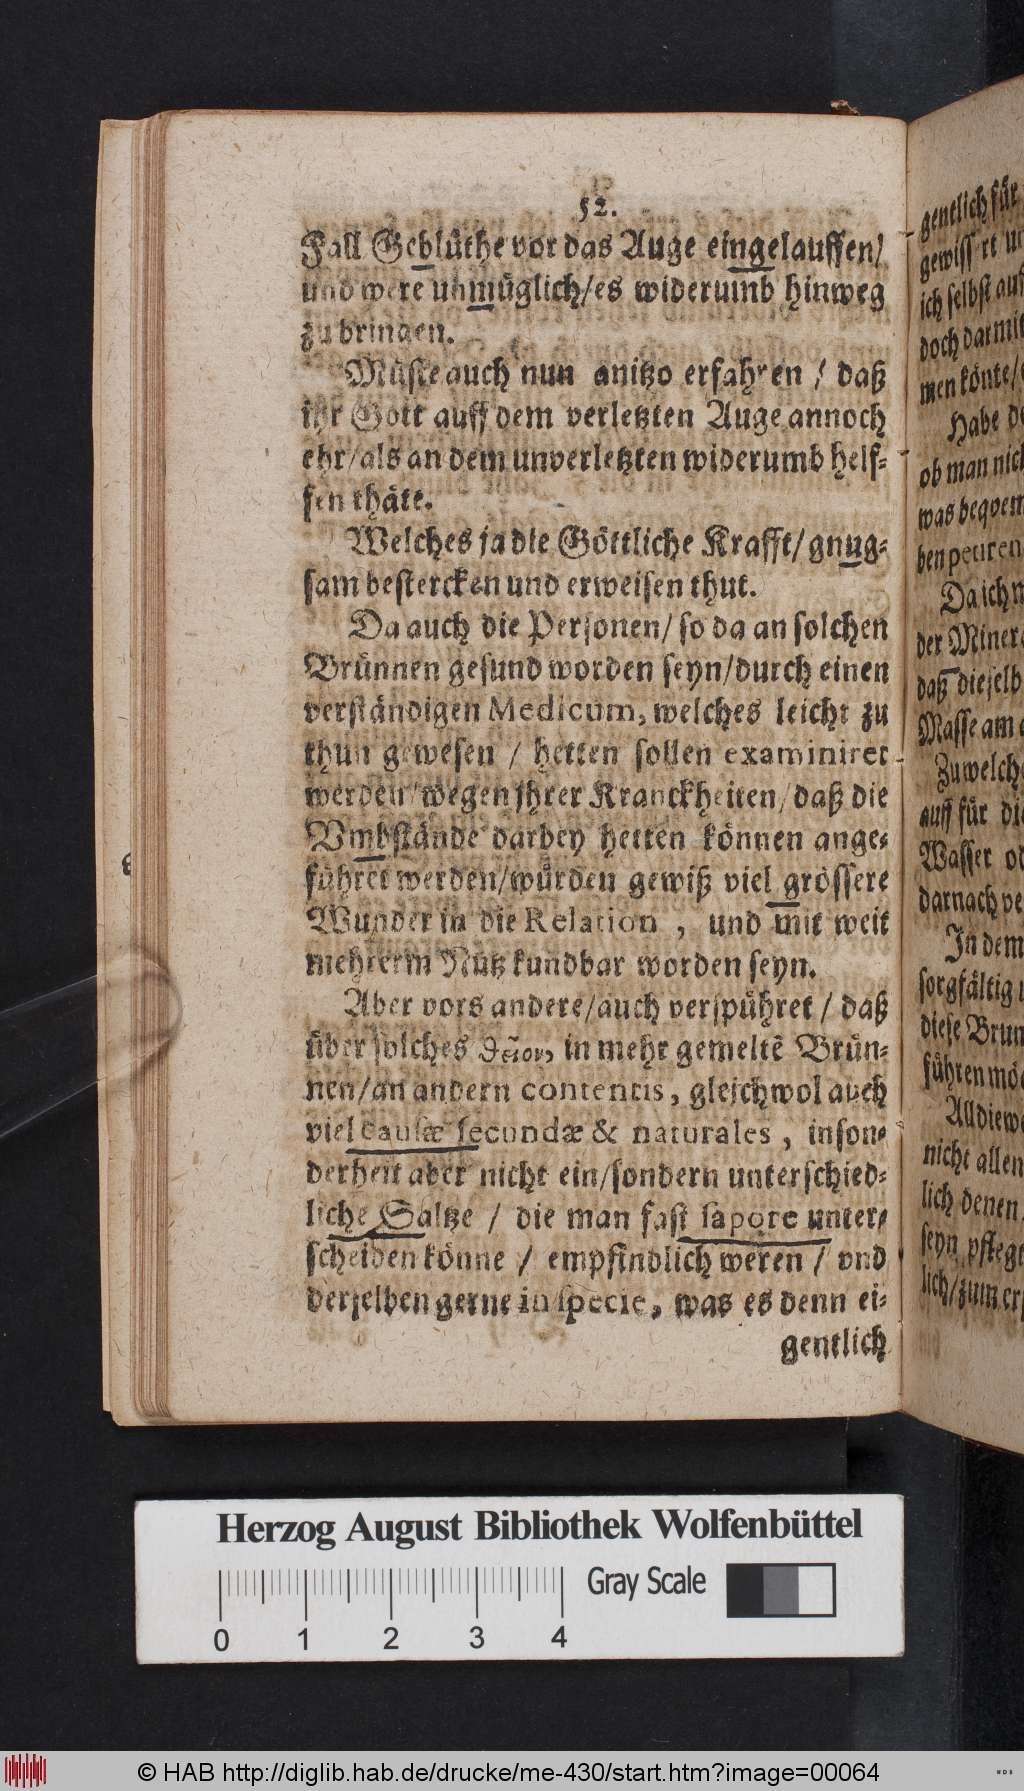 52.
Fall Geblüthe vor das Auge eingelauffen/
und were unmüglich/es widerumb hinweg
zu bringen.
Müste auch nun anitzo erfahren / daß
ihr Gott auff dem verletzten Auge annoch
ehr/als an dem unverletzten widerumb helf-
fen thäte.
Welches ja die Göttliche Krafft/gnug-
sam bestercken und erweisen thut.
Da auch die Personen/ so da an solchen
Brünnen gesund worden seyn/durch einen
verständigen Medicum, welches leicht zu
thun gewesen / hetten sollen examiniret
werden/wegen ihrer Kranckheiten/daß die
Vmbstände darbey hetten können ange-
führet werden/würden gewiß viel grössere
Wunder in die Relation , und mit weit
mehrerm Nutz kundbar worden seyn.
Aber vors andere/auch verspühret / daß
über solches θεῖον, in mehr gemeltē Brün-
nen/an andern contentis, gleichwol auch
viel causæ secundæ & naturales , inson-
derheit aber nicht ein/sondern unterschied-
liche Saltze / die man fast sapore unter-
scheiden könne / empfindlich weren / vnd
derselben gerne in specie, was es denn ei-
gentlich
gentlich für
ich selbst auf
men könte/
Habe
ob man nich
was beqvem
Da ich
der Miner
daß dieselb
Masse am
Zu welch
auff für die
Wasser
darnach
In dem
sorgfältig
diese Brun
führen
Alldiewe
nicht allen
lich denen
seyn pflegt
lich/zum
Herzog August Bibliothek Wolfenbüttel
Gray Scale
0 1 2 3 4
© HAB http://diglib.hab.de/drucke/me-430/start.htm?image=00064